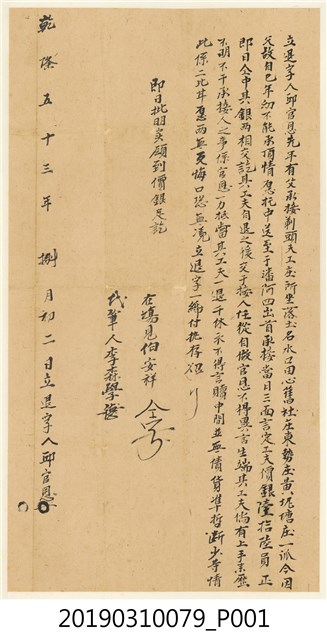 立退字人邱官恩先年有父承接剃頭工夫坐所坐落土名水口田心舊社庄東勢庄黃坭塘庄一派今因
父故自己年幼不能承頂情愿托中送至于潘阿四出首承接當日三面言定工夫價銀陸拾陸員正
即日仝中其銀兩相交訖其工夫自退之後交于接人任從自做官恩不得異言生端其工夫倘有上手來歷
不明不干承接人之事係官恩一力抵當其工夫一退千休亦不得言贖中間並無債貨準折斷少等情
此係二比甘愿兩無反悔口恐無憑立退字一紙付執存照
即日批明實領到價銀足訖
在塲見伯安祥
代筆人李森學
乾隆五十三年捌月初二日立退字人邱官恩
20190310079_P001